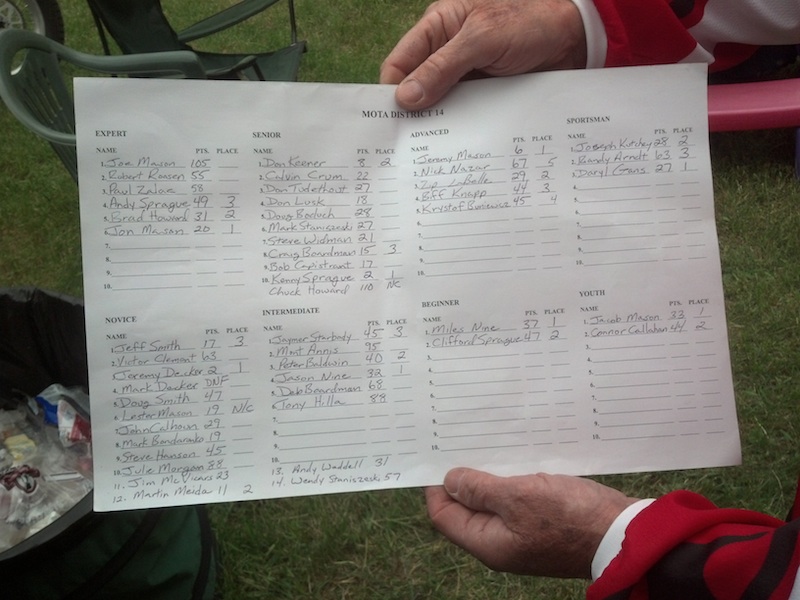 MOTA DISTRICT 14
EXPERT
NAME PTS. PLACE
1. Joe Mason 105
2. Robert Roosen 55
3. Paul Zaloz 58
4. Andy Sprague 49 3
5. Brad Howard 31 2
6. Jon Mason 20 1
7.
8.
9.
10.
SENIOR
NAME PTS. PLACE
1. Don Keener 8 2
2. Calvin Crum 22
3. Don Tudethout 27
4. Don Lusk 18
5. Doug Baduch 28
6. Mark Staniczeski 27
7. Steve Widman 21
8. Craig Boardman 15 3
9. Bob Capistrant 17
10. Kenny Sprague 2 1
Chuck Howard 110 N/C
ADVANCED
NAME PTS. PLACE
1. Jeremy Mason 6 1
2. Nick Naziar 67 5
3. Zip LaBelle 29 2
4. Biff Knapp 44 3
5. Krystof Busiewicz 45 4
6.
7.
8.
9.
10.
SPORTSMAN
NAME PTS. PLACE
1. Joseph Kutchey 28 2
2. Randy Arndt 63 3
3. Daryl Gans 27 1
4.
5.
6.
7.
8.
9.
10.
NOVICE
NAME PTS. PLACE
1. Jeff Smith 17 3
2. Victor Clement 63
3. Jeremy Decker 2 1
4. Mark Dacker DNF
5. Doug Smith 47
6. Lester Mason 19 N/C
7. John Calhoun 29
8. Mark Bondarenko 19
9. Steve Hanson 45
10. Julie Morgan 88
11. Jim McVicars 23
12. Martin Meida 11 2
INTERMEDIATE
NAME PTS. PLACE
1. Jaymer Starbody 45 3
2. Mont Annis 95
3. Peter Baldwin 40 2
4. Jason Nine 32 1
5. Deb Boardman 68
6. Tony Hilla 88
7.
8.
9.
10.
13. Andy Waddell 31
14. Wendy Staniszeski 57
BEGINNER
NAME PTS. PLACE
1. Miles Nine 37 1
2. Clifford Sprague 47 2
3.
4.
5.
6.
7.
8.
9.
10.
YOUTH
NAME PTS. PLACE
1. Jacob Mason 33 1
2. Connor Callahan 44 2
3.
4.
5.
6.
7.
8.
9.
10.